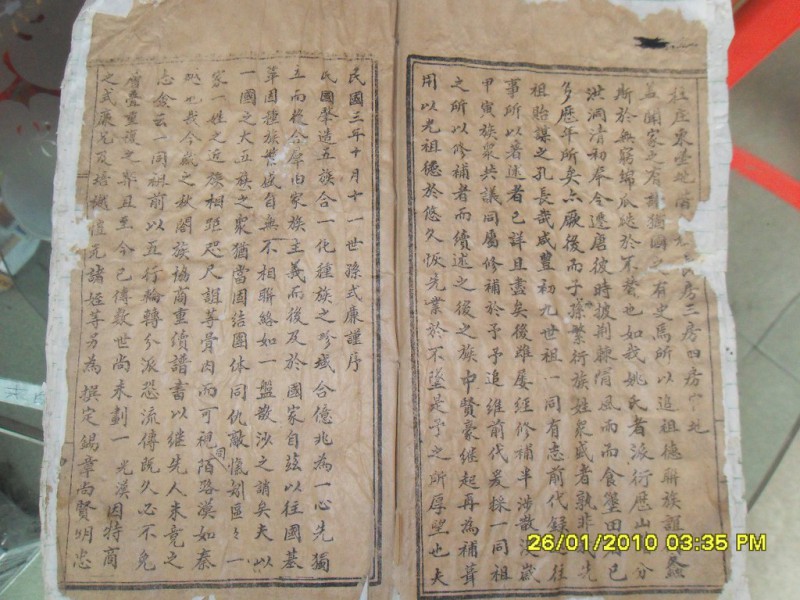 杜庄東 房三房四房 地
國家之有 有史焉所以追祖德聯族誼 螽
斯於無窮綿瓜瓞於不替也如我姚氏者派衍歷山 分
洪洞清初奉令遷居彼時披荆棘 風而 食墾田 已
多歷年所矣 厥後而子孫繁衍族姓衆盛者孰非 先
祖貽謀之孔長哉咸豐初九世祖一同有志前代錄 往
事所以著述者已詳且盡矣後雖屢經修補半涉散 歲
甲寅族衆共議同屬修補於予予追維前代爰採一同祖
之所以修補者而續述之後之族中賢豪继起再為補葺
用以光祖德於悠久恢先業於不墜是予之所厚望也夫
民國三年十月十一世孫式廉謹序
民國肇造五族合一化種族之畛域合億兆為一心先獨
主而後合群由家族主義而後及於國家自兹以往國基
固種族 感自無不相聯絡如一盤散沙之誚矣夫以
一國之大五族之衆猶當固結團体同仇敵愾矧區々一
家一姓之近族相距咫尺誼等骨肉而可視同陌路漠如秦
越也哉今歲之秋閤族協商重續譜書以继先人未竟之
志僉云一同祖前以五行輪轉分派恐流傳既久必不免
疊重復之弊且至今已傳数世尚未劃一 光漢因特商
之式廉兄及培 恒元諸姪等另為撰定錫章尚賢明忠
26/01/2010 03:35 PM